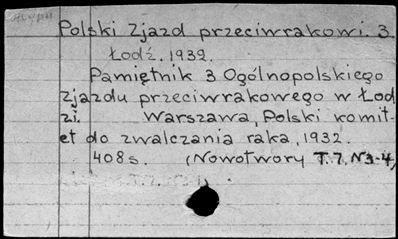 Polski Zjazd przeciwrakowi. 3.
Łodź. 1932.
Pamiętnik 3 Ogólnopolskiego
zjazdu przeciwrakowego w Łod
zi. Warszawa, Polski komit-
et do zwalczania raka, 1932.
408s. (Nowotwory T.7, N3-4)